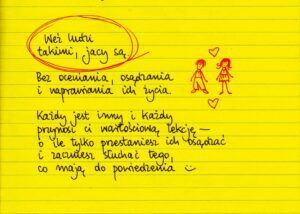 Weź ludzi
takimi, jacy są.
Bez oceniania, osądzania
i naprawiania ich życia.
Każdy jest inny i każdy
przynosi ci wartościową lekcję –
o ile tylko przestaniesz ich osądzać
i zaczniesz słuchać tego,
co mają do powiedzenia